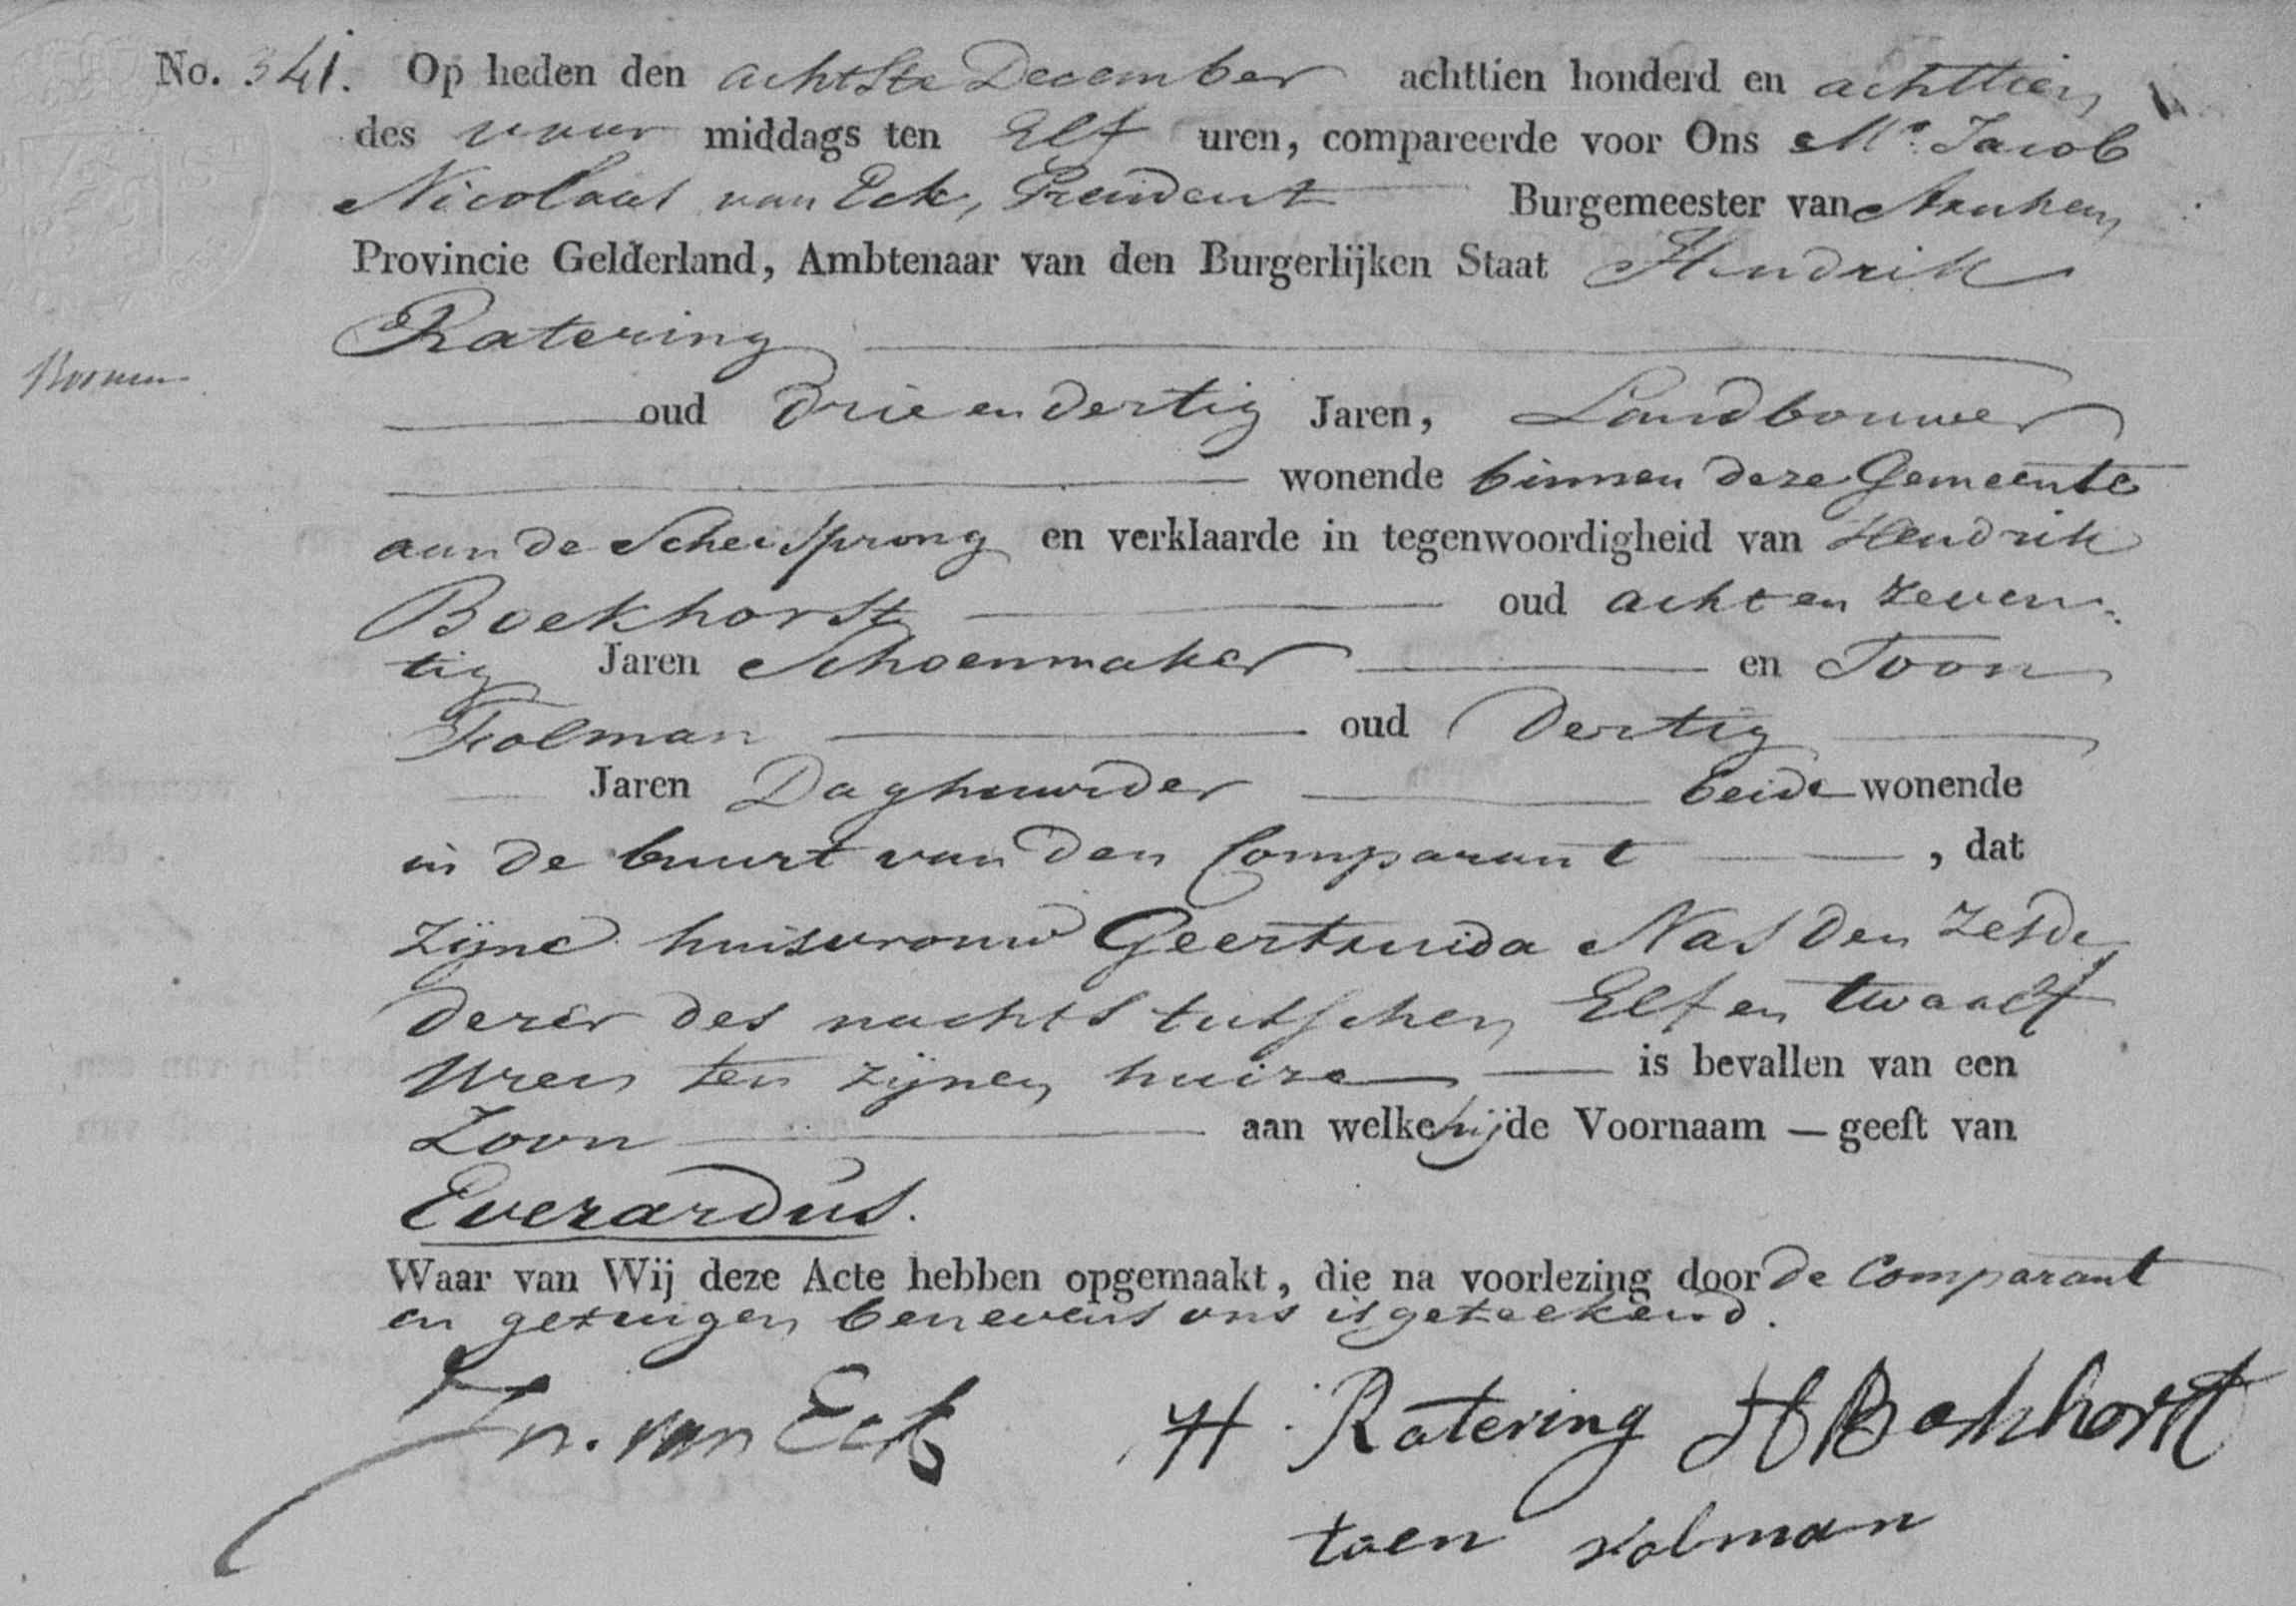 No. 341. Op heden den achtste December achttien honderd en achttien
des voor middags ten Elf uren, compareerde voor Ons Mr. Jacob
Nicolaas van Eck, President Burgemeester van Arnhem
Provincie Gelderland, Ambtenaar van den Burgerlijken Staat Hendrik
Ratering
oud drie en dertig Jaren, Landbouwer
wonende binnen deze Gemeente
aan de Schei Sprong en verklaarde in tegenwoordigheid van Hendrik
Boekhorst oud acht en zeven-
tig Jaren Schoenmaker en Toon
Kolman oud Dertig
Jaren Daghuurder beide wonende
in de buurt van den Comparant, dat
zijne huisvrouw Geertruida Nas den zesde
dezer des nachts tusschen Elf en twaalf
Uren ten zijnen huize is bevallen van een
Zoon aan welke hij de Voornaam — geeft van
Everardus.
Waar van Wij deze Acte hebben opgemaakt, die na voorlezing door de Comparant
en getuigen benevens ons is geteekend.
Jn. van Eck H Ratering H Bokhorst
toen Kolman